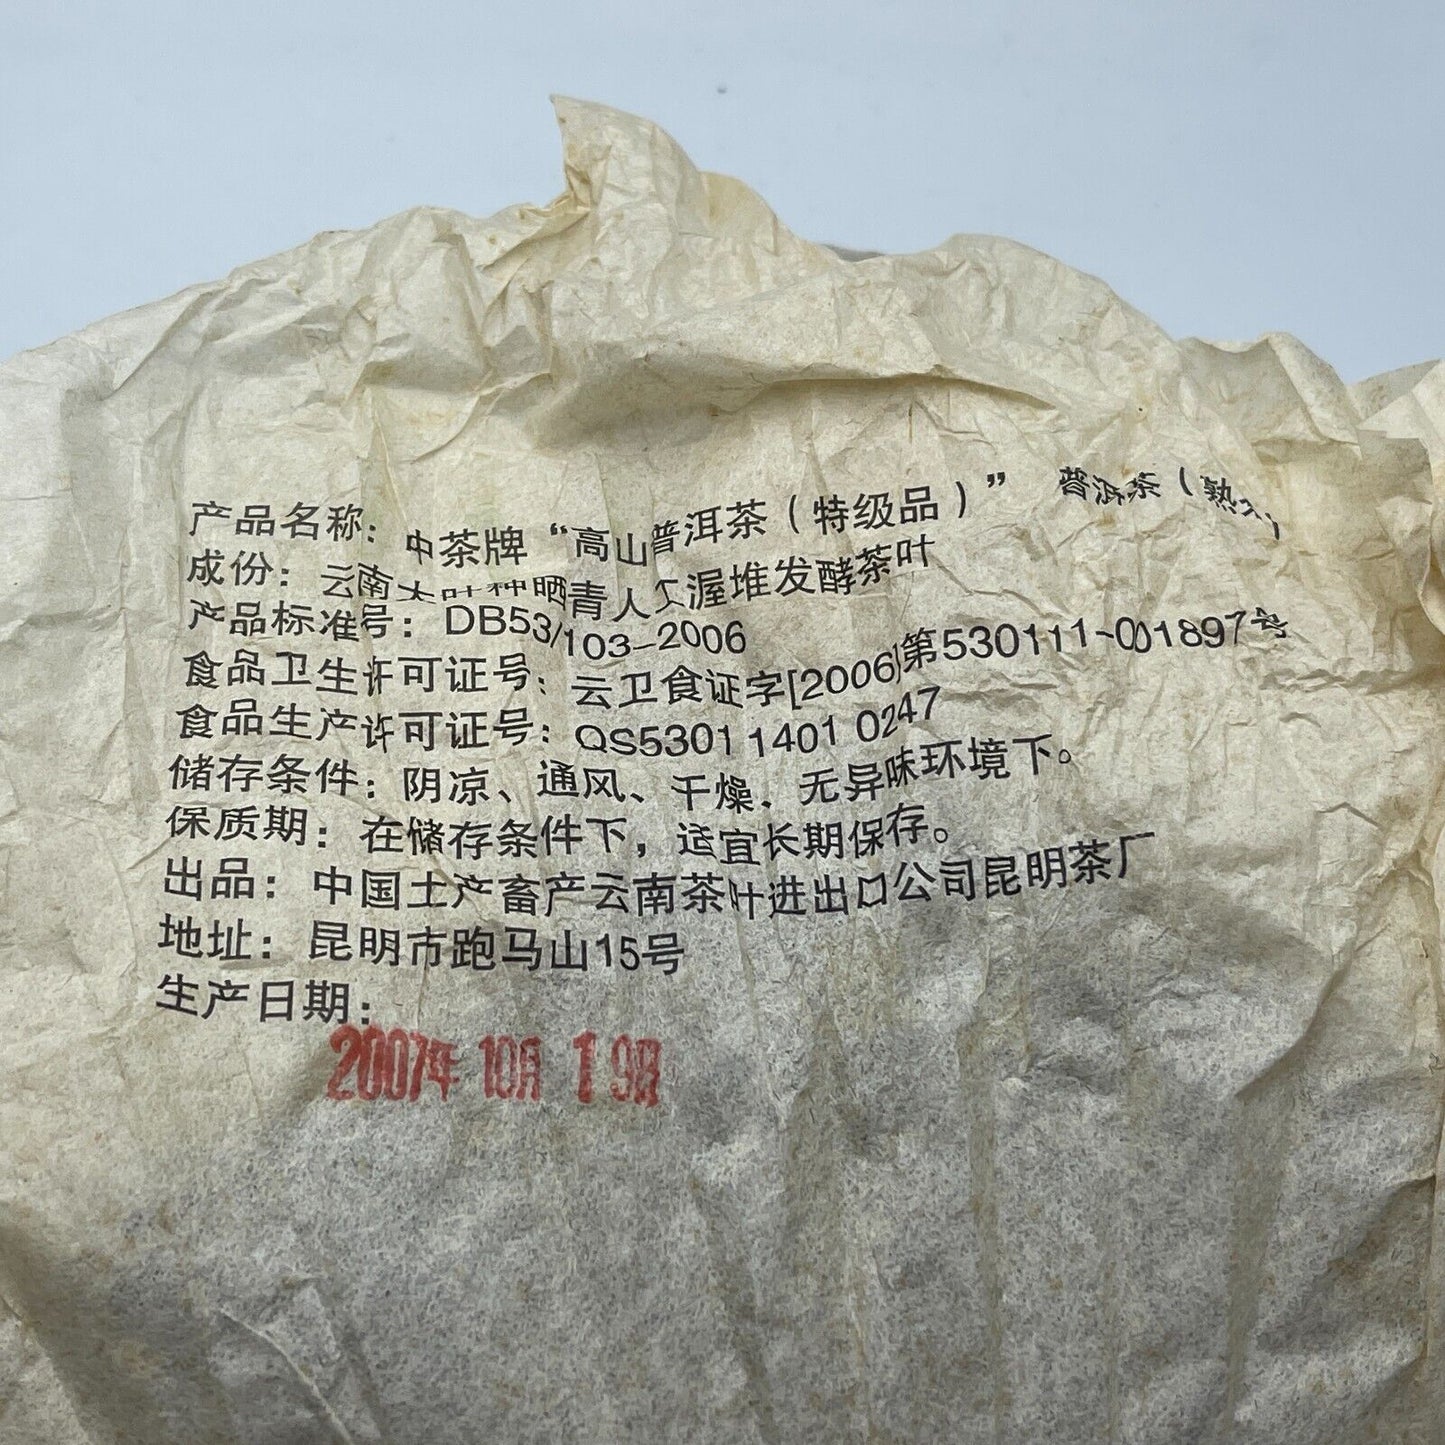 产品名称：中茶牌“高山普洱茶（特级品）” 普洱茶（熟茶）
成份：云南大叶种晒青人工渥堆发酵茶叶
产品标准号：DB53/103-2006
食品卫生许可证号：云卫食证字[2006]第530111-001897号
食品生产许可证号：QS5301 1401 0247
储存条件：阴凉、通风、干燥、无异味环境下。
保质期：在储存条件下，适宜长期保存。
出品：中国土产畜产云南茶叶进出口公司昆明茶厂
地址：昆明市跑马山15号
生产日期：
2007年 10月 19日